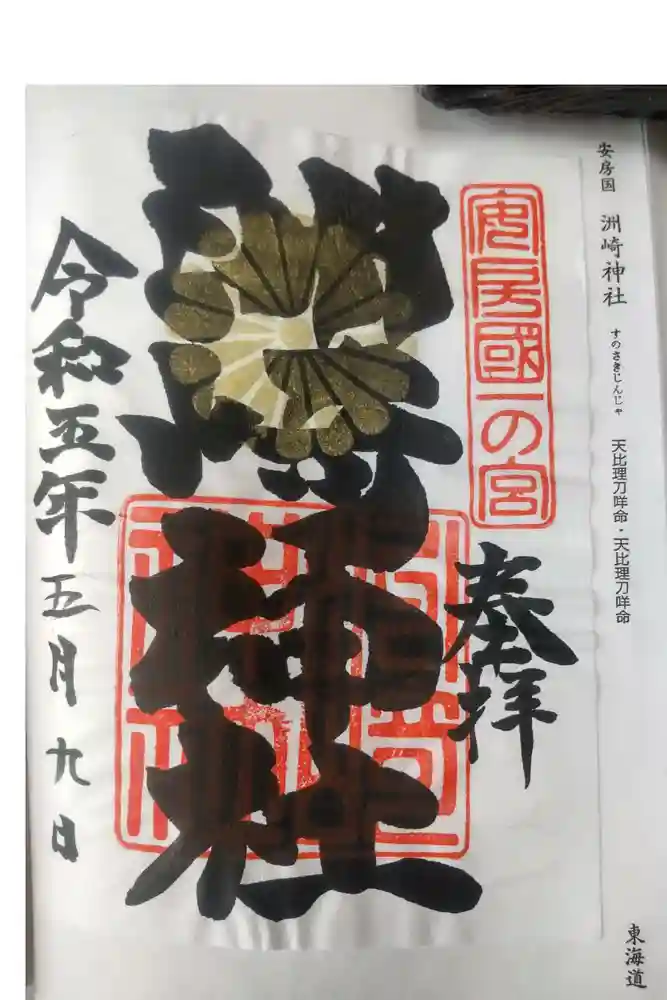 安房国 洲崎神社 すのさきじんじゃ 天比理刀咩命・天比理刀咩命
東海道
安房國一の宮
奉拝
洲崎神社
令和五年五月九日